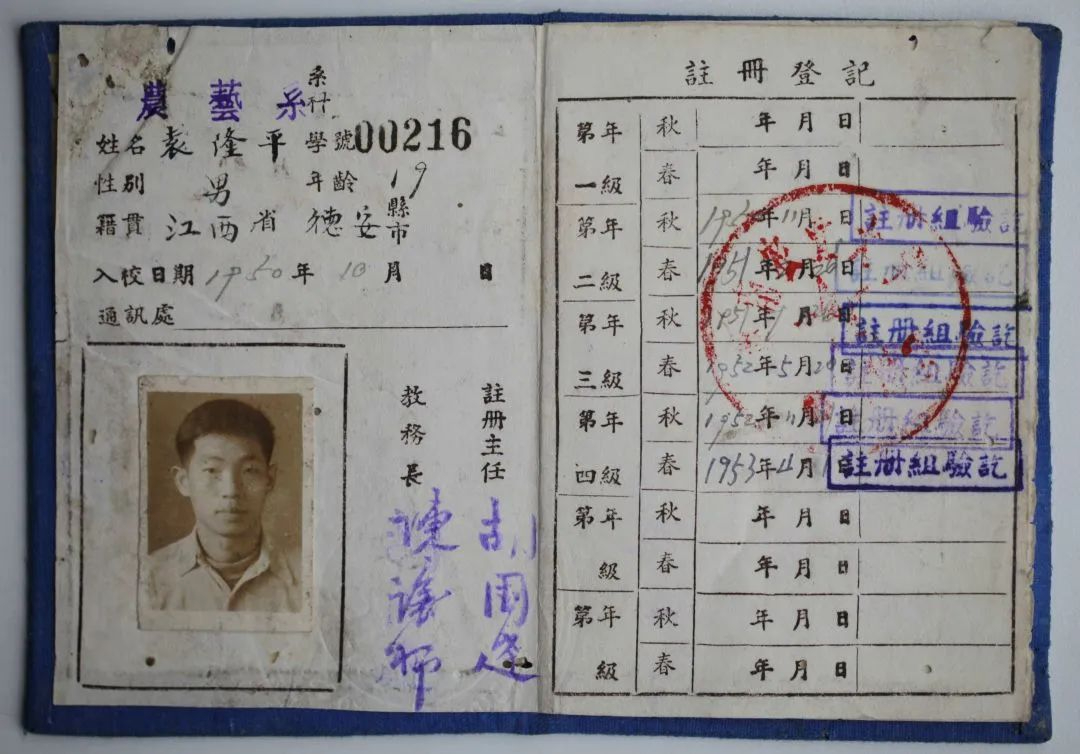 農藝系
系科
姓名 袁隆平 學號 00216
性別 男 年齡 19
籍貫 江西省 德安 縣市
入校日期 1950年10月 日
通訊處
註册主任 胡
教務長 陳讓卿
註冊登記
第一年級 秋 年月日
春 年月日
第二年級 秋 年11月 日 註冊組驗訖
春 1951年 月 日 註冊組驗訖
第三年級 秋 1951年 月 日 註冊組驗訖
春 1952年5月 日 註冊組驗訖
第四年級 秋 1952年11月 日 註冊組驗訖
春 1953年4月 註冊組驗訖
第年級 秋 年月日
春 年月日
第年級 秋 年月日
春 年月日